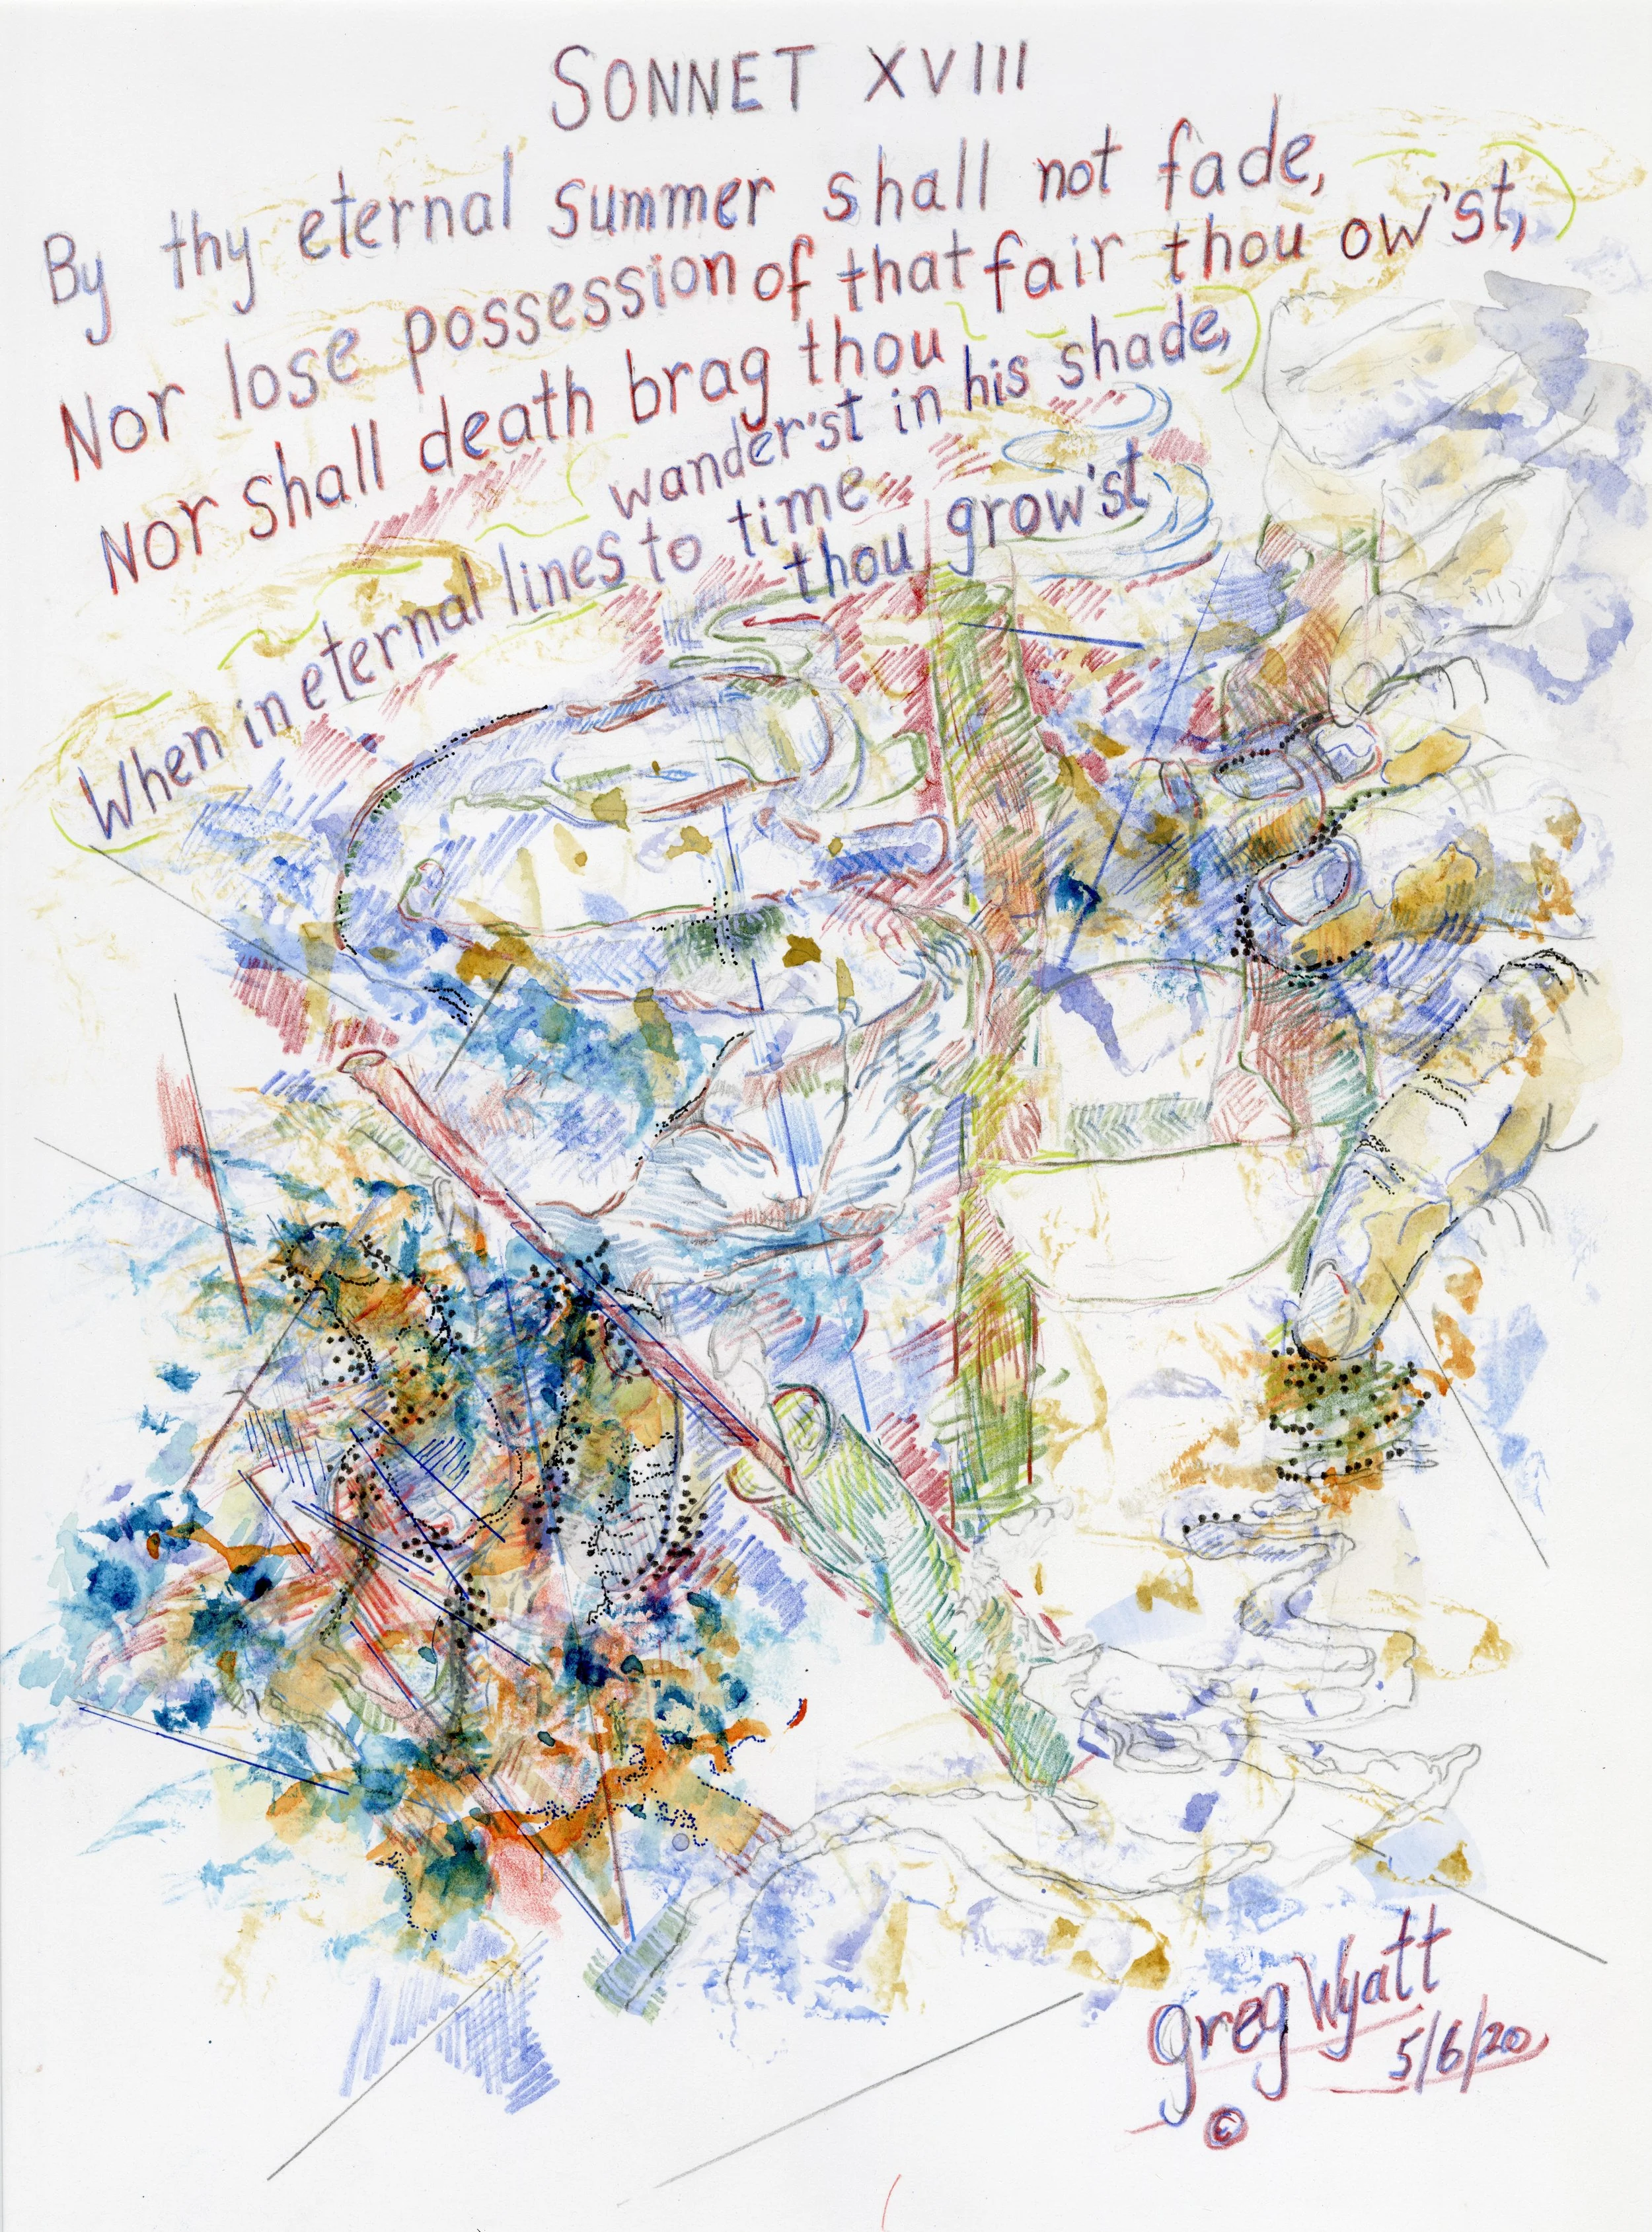 SONNET XVIII
By thy eternal summer shall not fade,
Nor lose possession of that fair thou ow'st,
Nor shall death brag thou
wander'st in his shade,
When in eternal lines to time
thou grow'st
Greg Wyatt
5/6/20
©